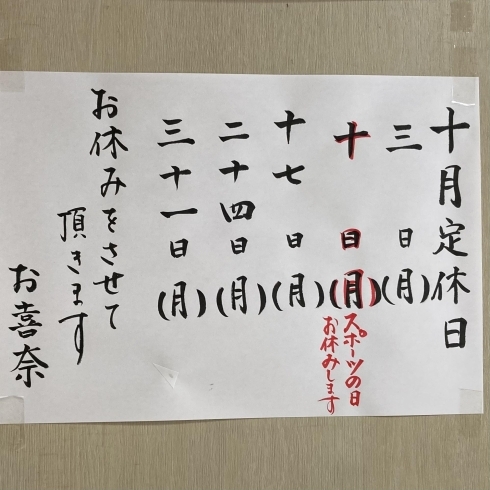 十月定休日
三日(月)
十日(月)
スポーツの日
お休みします
十七日(月)
二十四日(月)
三十一日(月)
お休みをさせて
頂きます
お喜奈